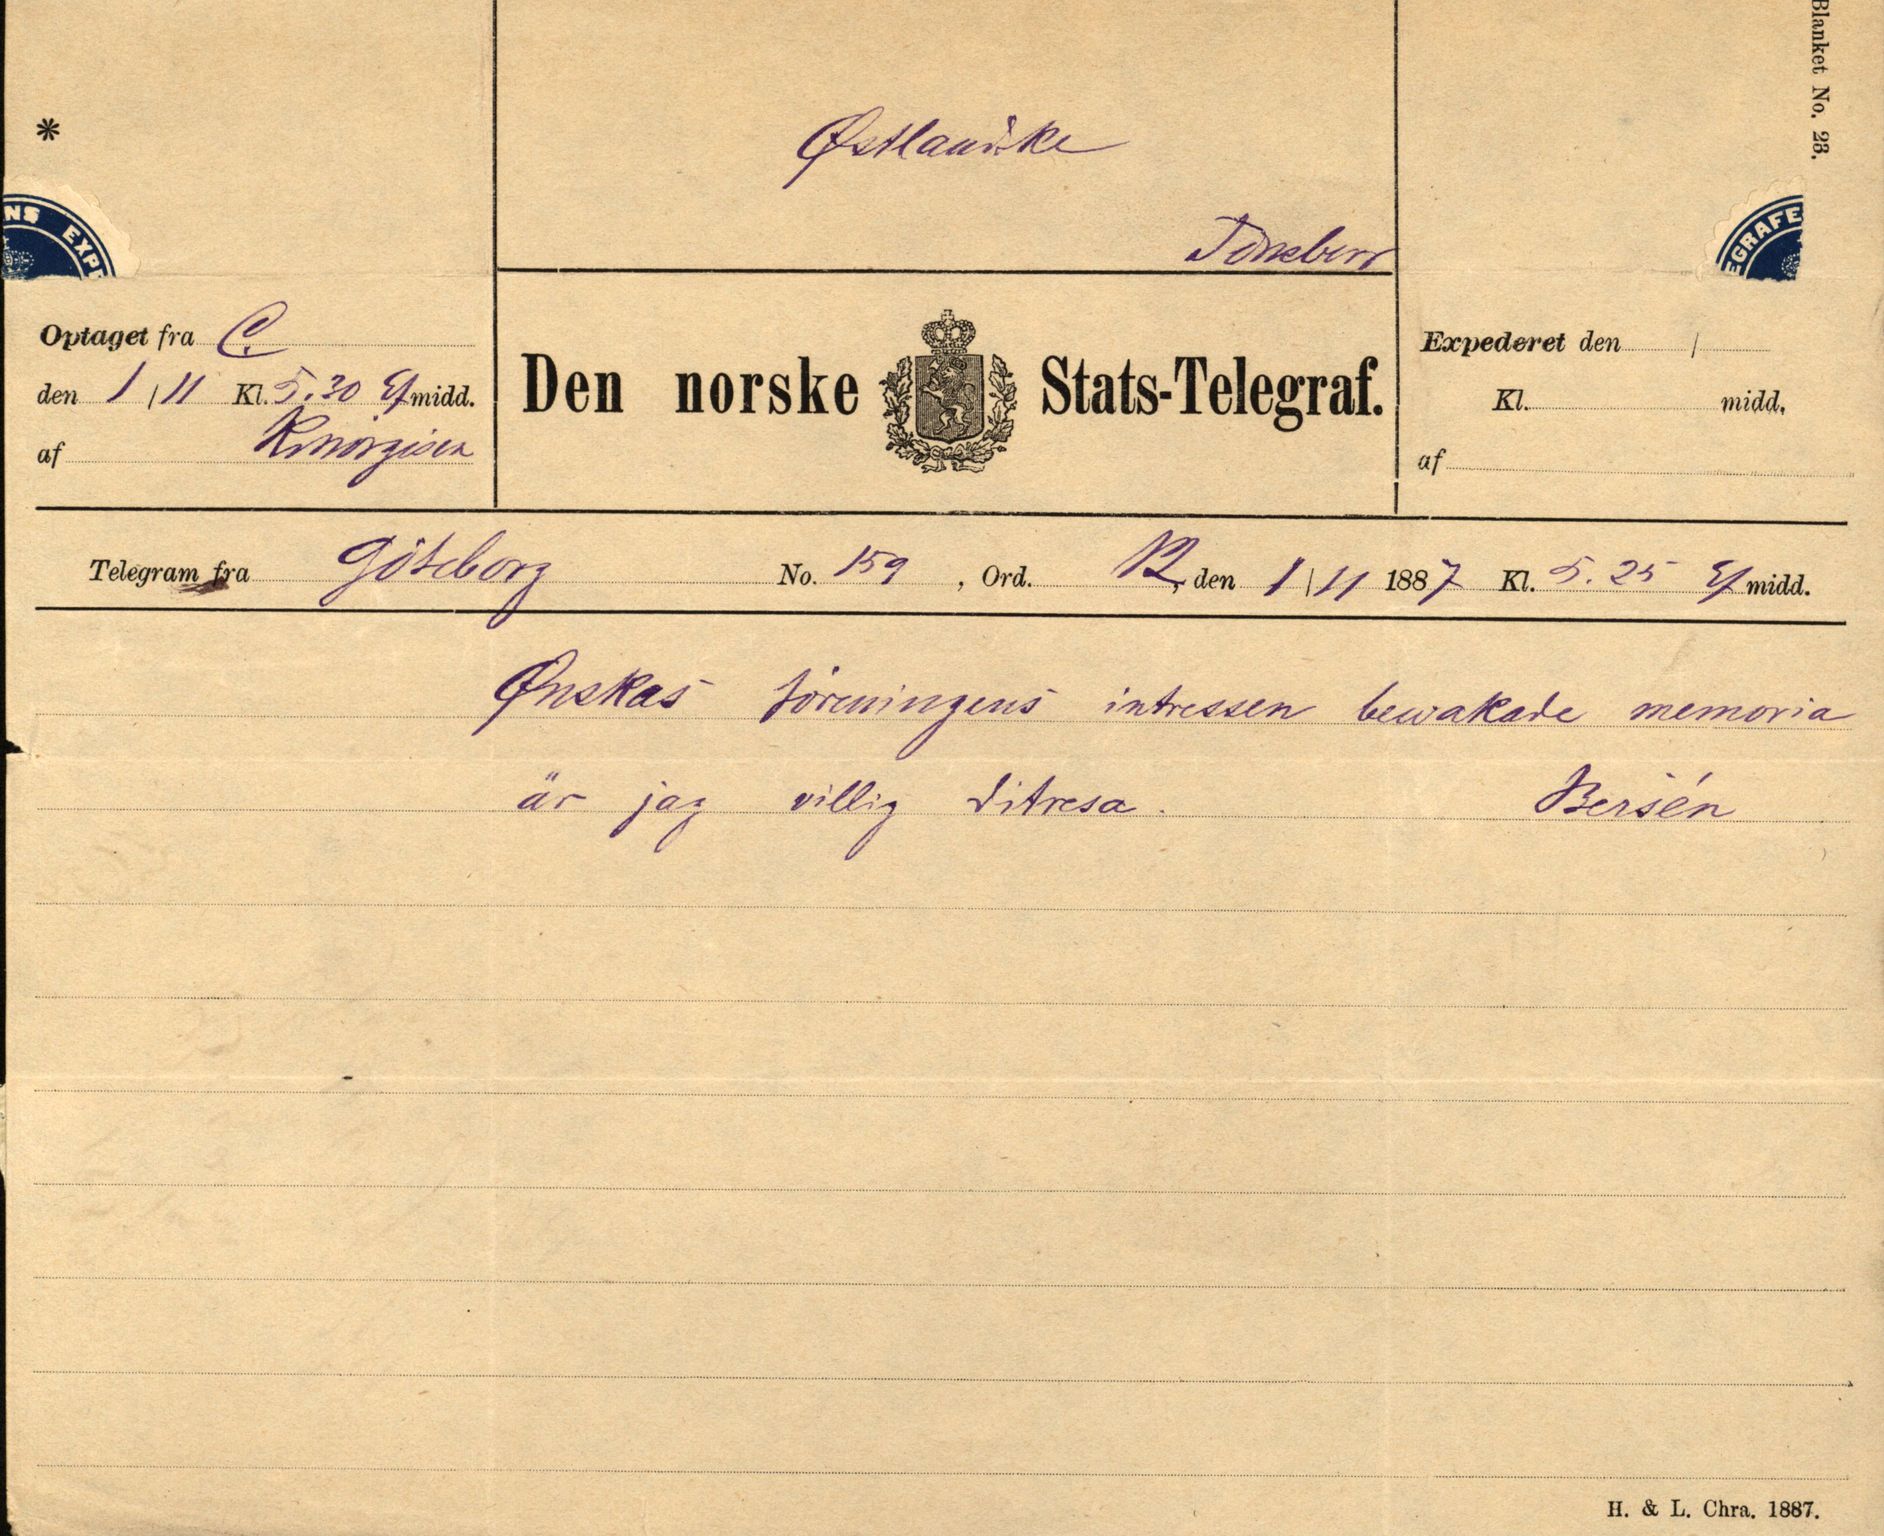 Blanket No. 23.
*
Østlandske
NS EXP
EGRAFE
Optaget fra C.
den 1 / 11 Kl. 5.30 Ef midd.
af
Den norske Stats-Telegraf.
Expederet den /
Kl. midd.
af
Telegram fra Göteborg No. 159, Ord. 12, den 1 / 11 1887 Kl. 5.25 Ef midd.
Ønskas föreningens intressen bewakade memoria
är jag villig ditresa. Bersén
H. & L. Chra. 1887.